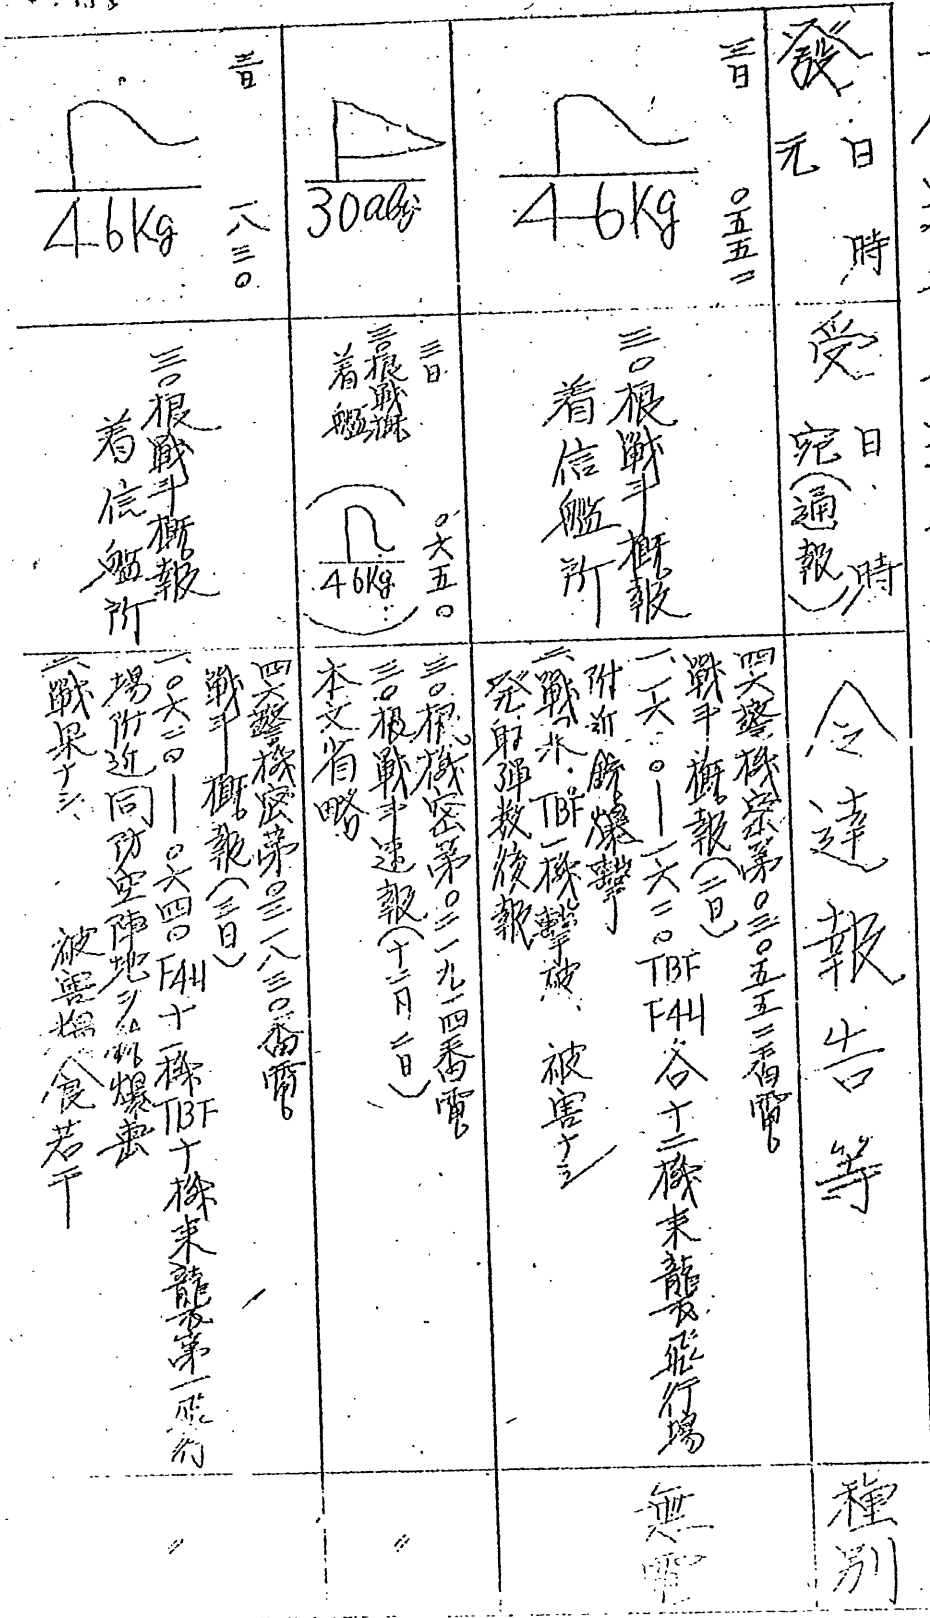 發
元
日
時
受
宛(通報)
日
時
令達報告等
種別
三日
〇五五二
46Kg
三〇根戦斗概報
着信艦所
四六警機密第〇三〇五五二番電
戦斗概報(二日)
一、一六一〇—一六二〇TBF
F4U各十二機来襲飛行場
附近銃爆撃
二、戦果、TBF一機撃破 被害ナシ
発射弾数後報
無電
30abg
三日
〇六五〇
三〇根戦概
着艦
(46Kg)
三〇根機密第〇二一九一四番電
三〇根戦斗速報(十二月二日)
本文省略
〃
三日
一八三〇
46Kg
三〇根戦斗概報
着信艦所
四六警機密第〇三一八三〇番電
戦斗概報(三日)
一、〇六二〇—〇六四〇F4U十一機TBF十機来襲第一飛行
場附近同防空陣地ヲ銃爆撃
二、戦果ナシ 被害糧食若干
〃